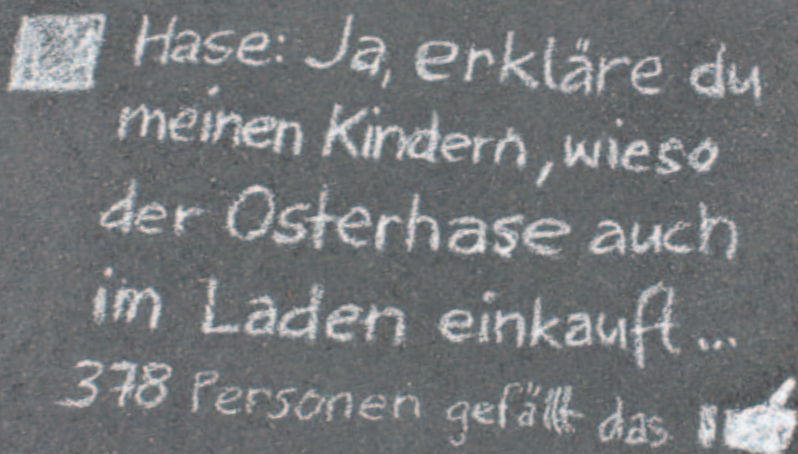 Hase: Ja, erkläre du
meinen Kindern, wieso
der Osterhase auch
im Laden einkauft...
378 Personen gefällt das